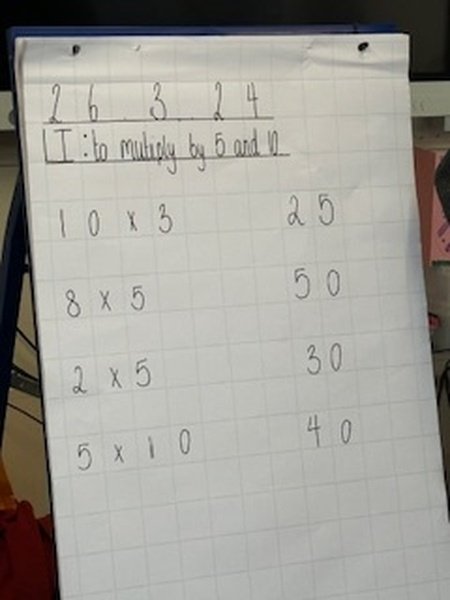 26.3.24
LI: to mutiply by 5 and 10
10 x 3 25
8 x 5 50
2 x 5 30
5 x 10 40